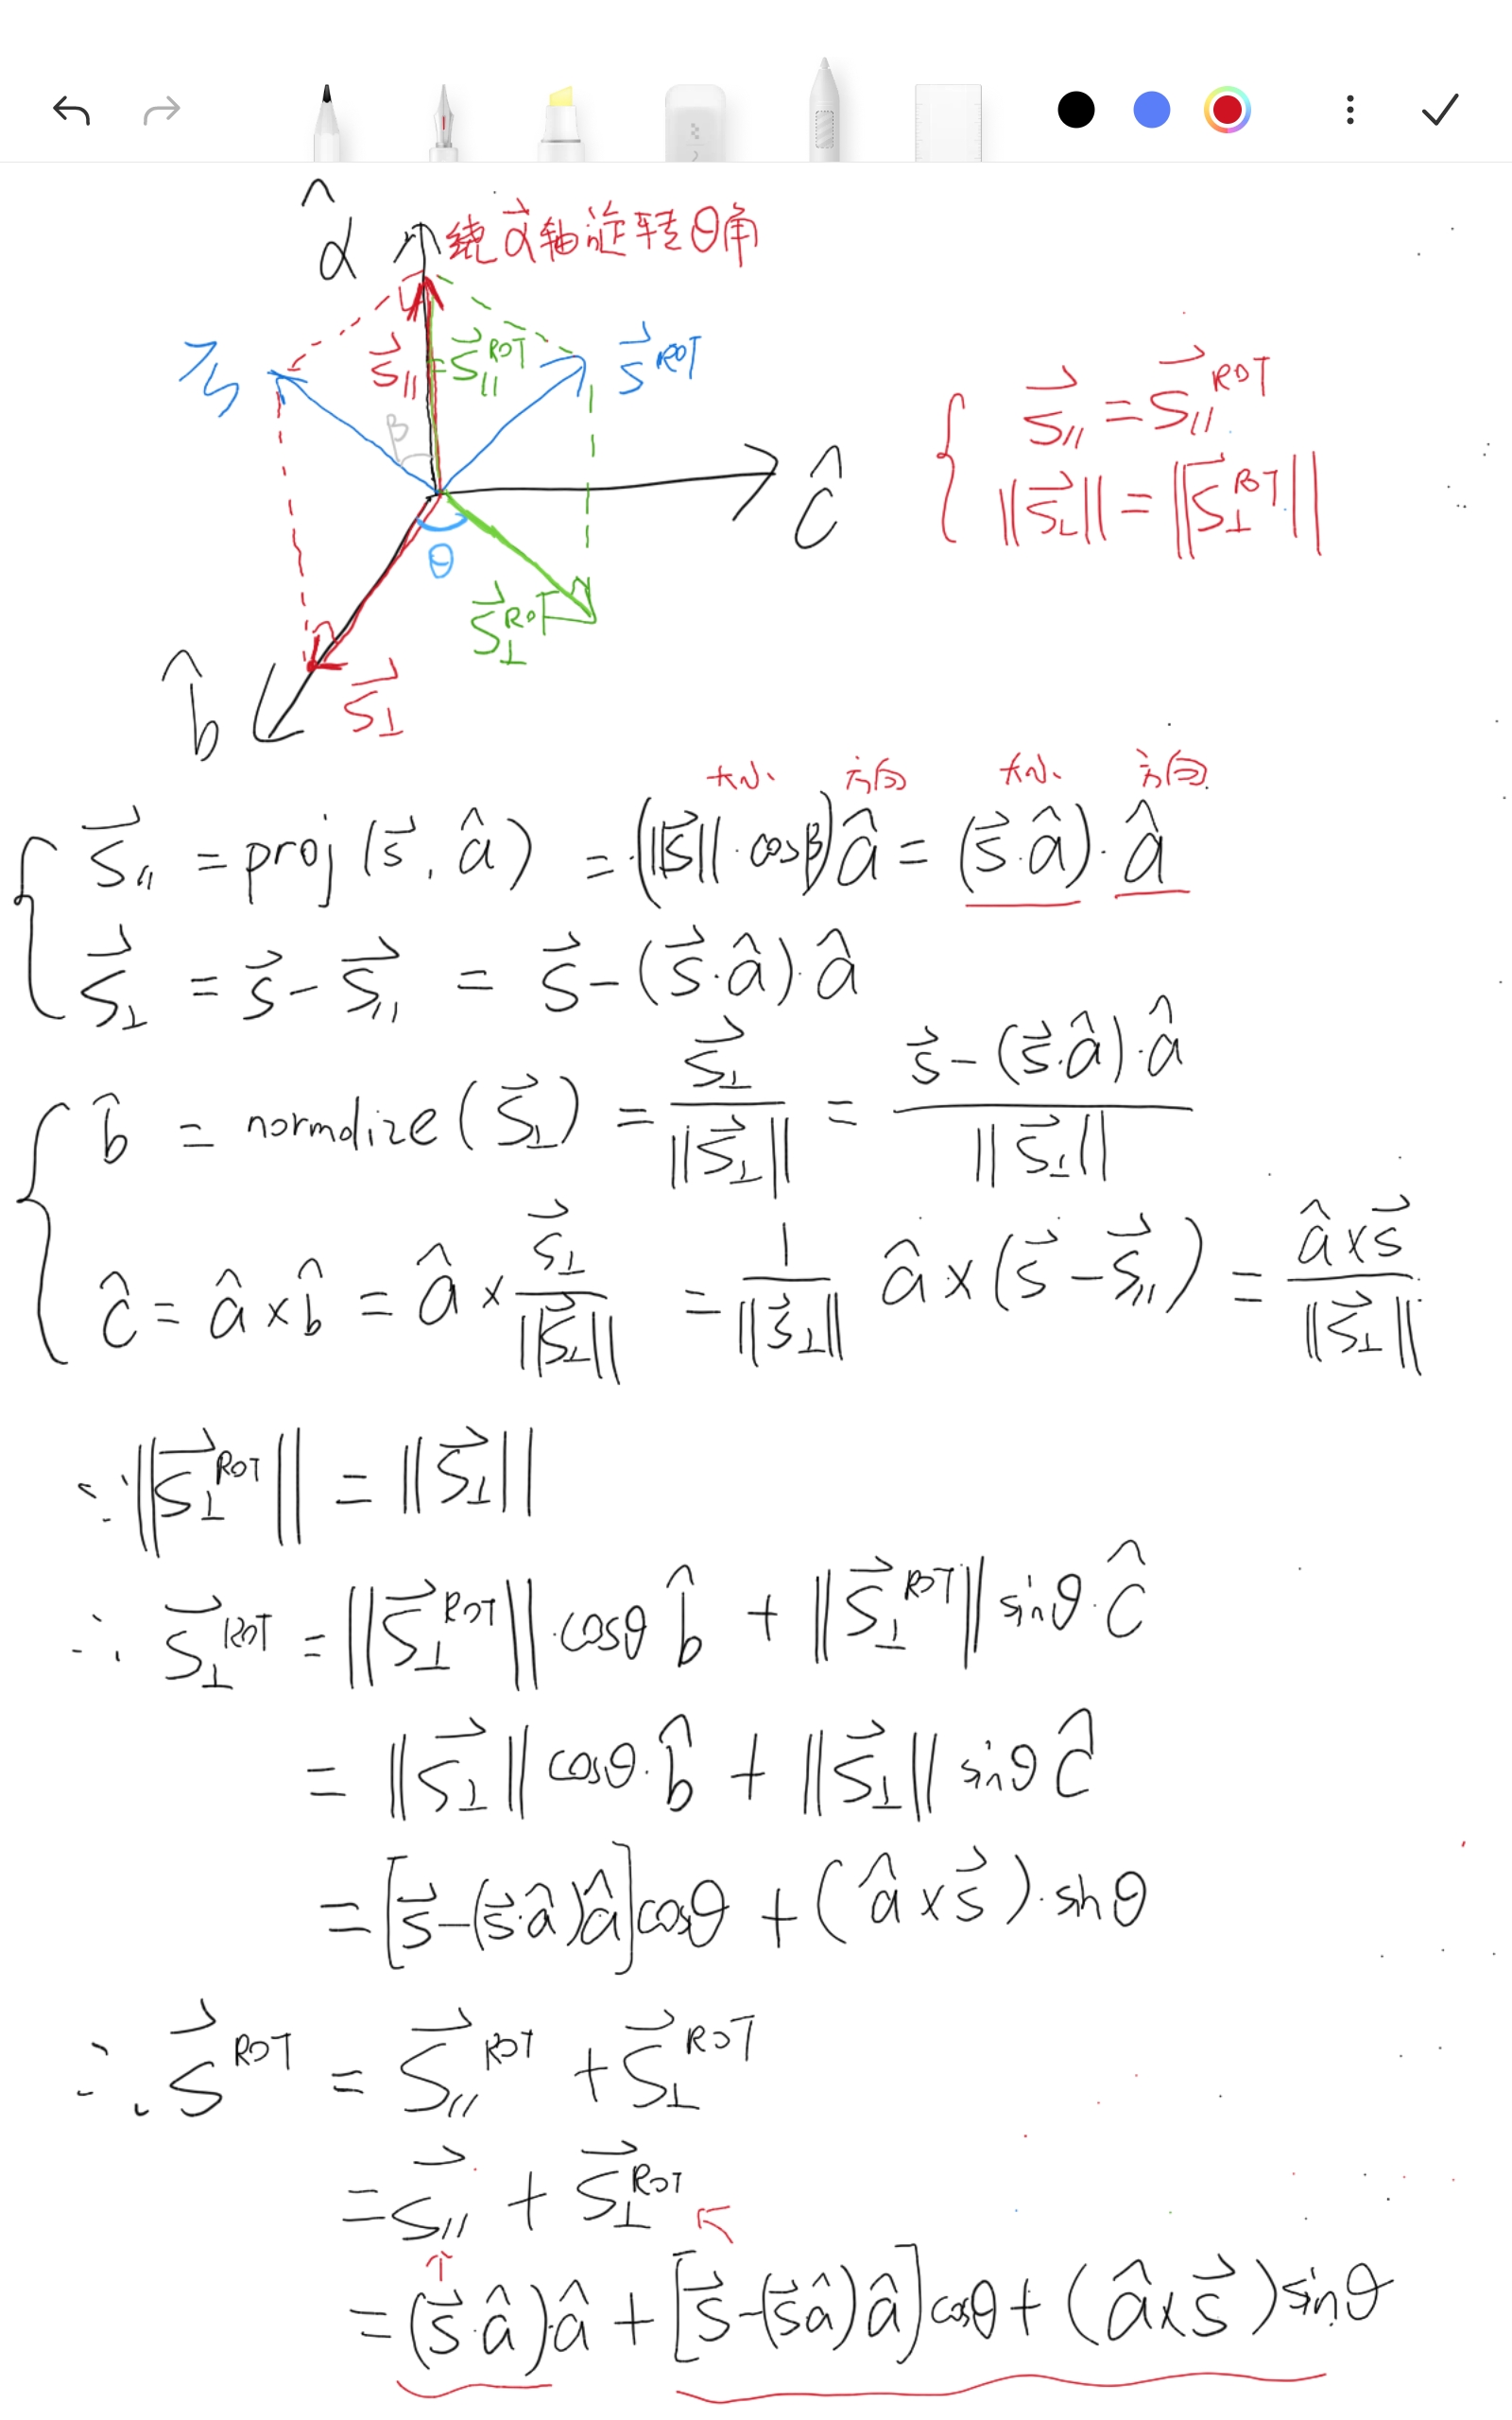 â 绕a⃗轴旋转θ角
s⃗ s⃗∥ = s⃗∥^ROT s⃗^ROT
β
ĉ
θ
s⃗⊥^ROT
b̂ s⃗⊥
{ s⃗∥ = s⃗∥^ROT
||s⃗⊥|| = ||s⃗⊥^ROT||
大小 方向 大小 方向
{ s⃗∥ = proj(s⃗, â) = (||s⃗||·cosβ)â = (s⃗·â)·â
s⃗⊥ = s⃗ - s⃗∥ = s⃗ - (s⃗·â)·â
{ b̂ = normalize(s⃗⊥) = s⃗⊥ / ||s⃗⊥|| = s⃗ - (s⃗·â)·â / ||s⃗⊥||
ĉ = â × b̂ = â × s⃗⊥ / ||s⃗⊥|| = 1 / ||s⃗⊥|| â × (s⃗ - s⃗∥) = â × s⃗ / ||s⃗⊥||
∵ ||s⃗⊥^ROT|| = ||s⃗⊥||
∴ s⃗⊥^ROT = ||s⃗⊥^ROT||·cosθ b̂ + ||s⃗⊥^ROT|| sinθ·ĉ
= ||s⃗⊥|| cosθ·b̂ + ||s⃗⊥|| sinθ ĉ
= [s⃗ - (s⃗·â)â]cosθ + (â × s⃗)·sinθ
∴ s⃗^ROT = s⃗∥^ROT + s⃗⊥^ROT
= s⃗∥ + s⃗⊥^ROT
= (s⃗·â)·â + [s⃗ - (s⃗â)â]cosθ + (â × s⃗)sinθ